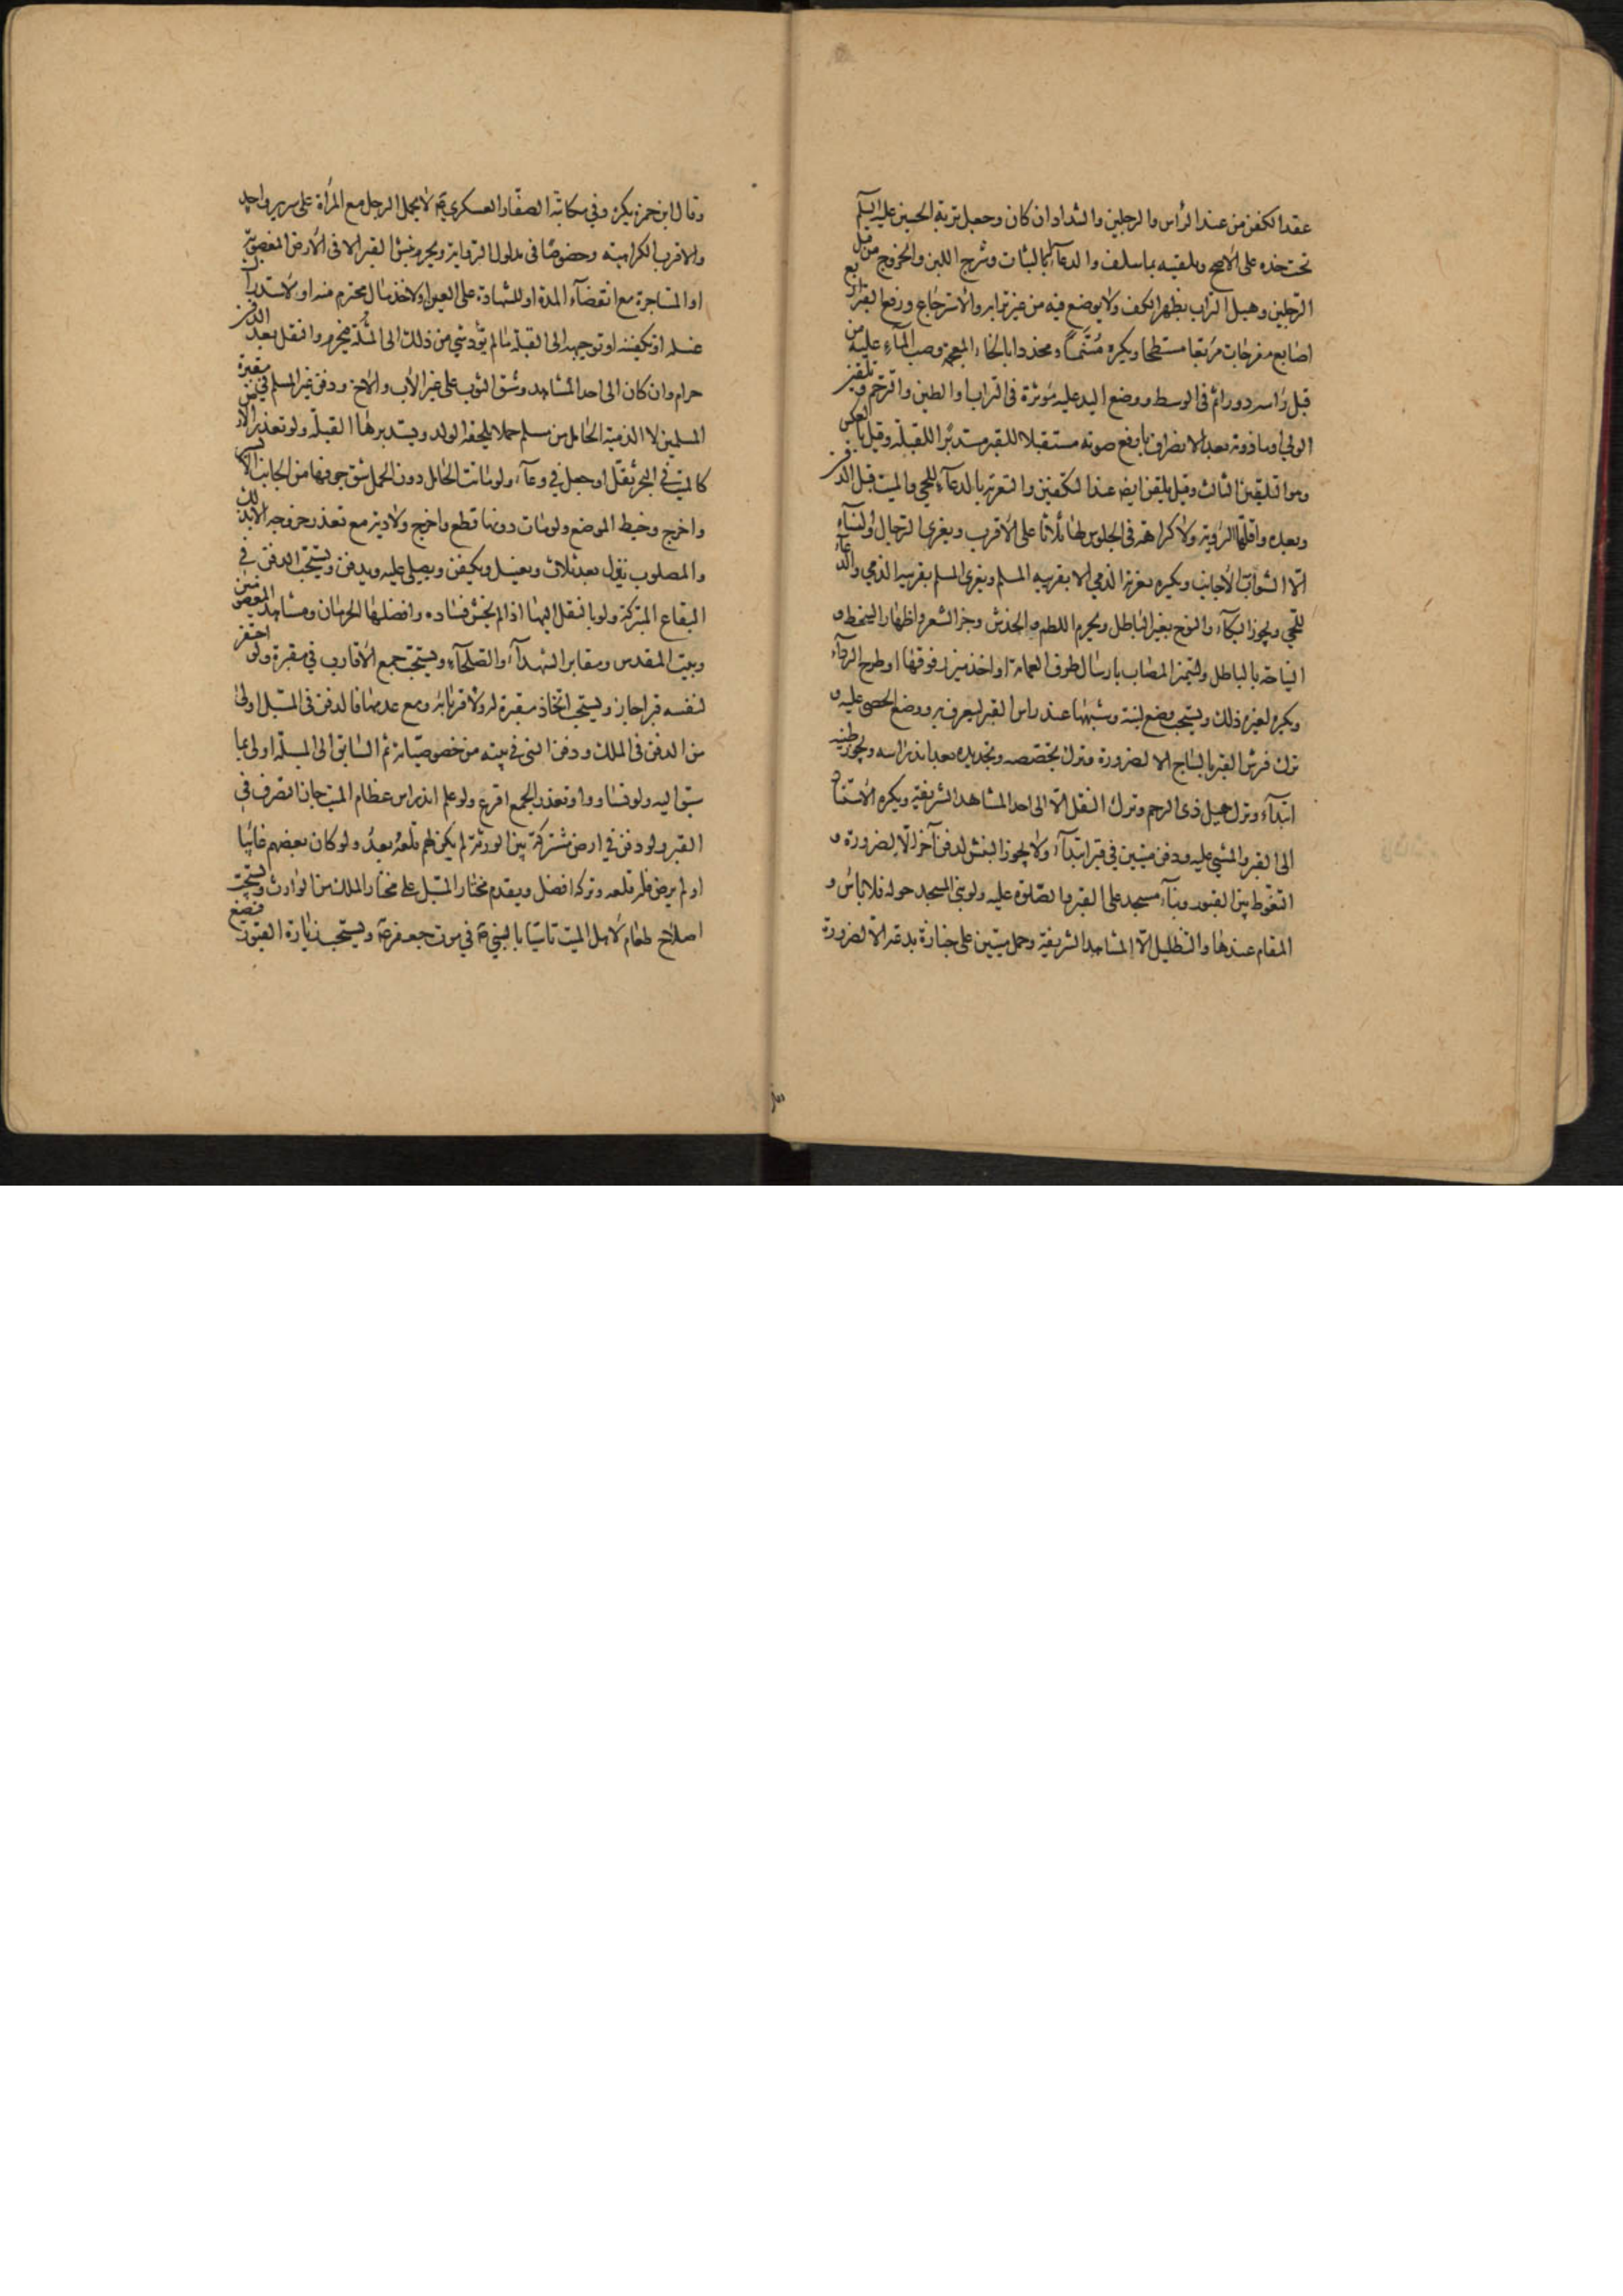 عقد الكفن من عند الرأس والرجلين والشداد ان كان وجعل تربة الحسين عليه السلم
تحت خده على الاصح وتلقينه بما سلف والدعآء له بالثبات وشرج اللبن والخروج من قبل
الرجلين وهيل التراب بظهر الكف ولا يوضع فيه من غير ترابه والاسترجاع ورفع القبر اربع
اصابع مفرجات مربعا مسطحا ويكره مسنما ومخددا بالخاء المعجمة وصب المآء عليه من
قبل رأسه دورا ثم في الوسط ووضع اليد عليه مؤثرة في التراب او الطين والترحم و تلقين
الولي او ماذونه بعد الانصراف بارفع صوته مستقبلا للقبر مستدبرا للقبلة وقيل بالعكس
وهو التلقين الثالث وقيل يلقن ايضا عند التكفين والتعزية بالدعآء للحي والميت قبل الدفن
وبعده واقلها الرؤية ولا كراهة في الجلوس لها ثلاثا على الاقرب ويعزى الرجال والنسآء
الا الشواب الاجانب ويكره تعزية الذمي الا بقريبه المسلم ويعزى المسلم بقريبه الذمي والدعآء
للحي ويجوز البكآء والنوح بغير الباطل ويحرم اللطم والخدش وجز الشعر واظهار السخط و
النياحة بالباطل وليتميز المصاب بارسال طرف العمامة او اخذ ميزر فوقها او طرح الردآء
ويكره لغيره ذلك ويستحب وضع لبنة وشبهها عند راس القبر ليعرف به ووضع الحصى عليه و
ترك فرش القبر بالساج الا لضرورة وترك تجصيصه وتجديده بعد اندراسه ويجوز طينه
ابتدآء وترك هيل ذى الرحم وترك النقل الا الى احد المشاهد الشريفة ويكره الاستناد
الى القبر والمشي عليه ودفن ميتين في قبر ابتدآء ولا يجوز النبش لدفن آخر الا لضرورة و
التغوط بين القبور وبنآء مسجد على القبر والصلوة عليه ولو بنى المسجد حوله فلا باس و
المقام عندها والتظليل الا المشاهد الشريفة وحمل ميتين على جنازة بدعة الا لضرورة
وقال ابن حمزة يكره وفي مكاتبة الصفار العسكري ع لا يحمل الرجل مع المرأة على سرير واحد
والاقرب الكراهية وخصوصا في مدلول الرواية ويحرم نبش القبر الا في الارض المغصوبة
او المستاجرة مع انقضآء المدة او للشهادة على العين او لاخذ مال محترم منه او لاستدراك
غسله او تكفينه او توجيهه الى القبلة ما لم يؤد شي من ذلك الى المثلة فيحرم والنقل بعد الدفن
حرام وان كان الى احد المشاهد وشق الثوب على غير الاب والاخ ودفن غير المسلم في مقبرة
المسلمين لا الذمية الحامل من مسلم حملا يلحقه الولد ويستدبر بها القبلة ولو تعذر الارض
كالميت في البحر ثقل او جعل في وعآء ولو ماتت الحامل دون الحمل شق جوفها من الجانب الايسر
واخرج وخيط الموضع ولو مات دونها قطع واخرج ولا دية مع تعذر خروجه الا بذلك
والمصلوب ينزل بعد ثلاث ويغسل ويكفن ويصلى عليه ويدفن ويستحب الدفن في
البقاع المتبركة ولو بالنقل اليها اذا لم يخش فساده وافضلها الحرمان ومشاهد المعصومين
وبيت المقدس ومقابر الشهدآء والصلحآء ويستحب جمع الاقارب في مقبرة ولو احتفر
لنفسه قبرا جاز ويستحب اتخاذ مقبرة له ولاقربائه ومع عدمها فالدفن في المسبل اولى
من الدفن في الملك ودفن النبي في بيته من خصوصياته ثم السابق الى المسبلة اولى بما
سبق اليه ولو تساووا وتعذر الجمع اقرع ولو علم اندراس عظام الميت جاز التصرف في
القبر ولو دفن في ارض مشتركة بين الورثة لم يكن لهم قلعه بعد ولو كان بعضهم غائبا
او لم يرض فله قلعه وتركه افضل ويقدم مختار المسبل على مختار الملك من الوارث ويستحب
اصلاح طعام لاهل الميت تاسيا بالنبي ص في موت جعفر ع ويستحب زيارة القبور فيضع